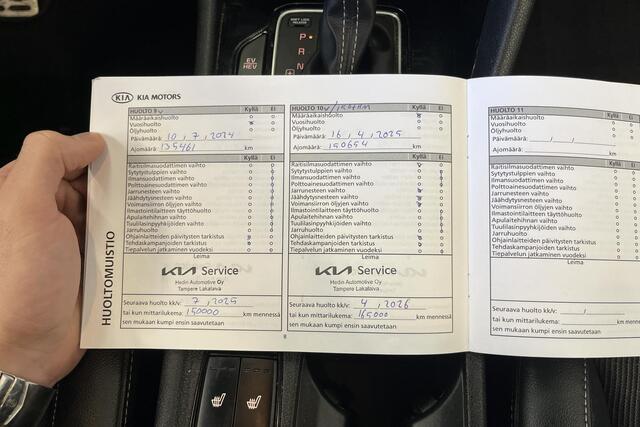 SHIFT LOCK
RELEASE
P
R
N
EV
HEV
KIA KIA MOTORS
HUOLTOMUISTIO
HUOLTO 9 Kyllä Ei
Määräaikaishuolto
Vuosihuolto
Öljyhuolto
Päivämäärä: 10, 7, 2024
Ajomäärä: 135461 km
Kyllä Ei
Raitisilmasuodattimen vaihto
Sytytystulppien vaihto
Ilmansuodattimen vaihto
Polttoainesuodattimen vaihto
Jarrunesteen vaihto
Jäähdytysnesteen vaihto
Voimansiirron öljyjen vaihto
Ilmastointilaitteen täyttöhuolto
Apulaitehihnan vaihto
Tuulilasinpyyhkijöiden vaihto
Jarruhuolto
Ohjainlaitteiden päivitysten tarkistus
Tehdaskampanjoiden tarkistus
Tiepalvelun jatkaminen vuodeksi
Leima
KIA Service
Hedin Automotive Oy
Tampere Lakalaiva
Seuraava huolto kk/v: 7, 2025
tai kun mittarilukema: 150000 km mennessä
sen mukaan kumpi ensin saavutetaan
HUOLTO 10 Kyllä Ei
Määräaikaishuolto
Vuosihuolto
Öljyhuolto
Päivämäärä: 16, 4, 2025
Ajomäärä: 150654 km
Kyllä Ei
Raitisilmasuodattimen vaihto
Sytytystulppien vaihto
Ilmansuodattimen vaihto
Polttoainesuodattimen vaihto
Jarrunesteen vaihto
Jäähdytysnesteen vaihto
Voimansiirron öljyjen vaihto
Ilmastointilaitteen täyttöhuolto
Apulaitehihnan vaihto
Tuulilasinpyyhkijöiden vaihto
Jarruhuolto
Ohjainlaitteiden päivitysten tarkistus
Tehdaskampanjoiden tarkistus
Tiepalvelun jatkaminen vuodeksi
Leima
KIA Service
Hedin Automotive Oy
Tampere Lakalaiva
Seuraava huolto kk/v: 4, 2026
tai kun mittarilukema: 165000 km mennessä
sen mukaan kumpi ensin saavutetaan
8
HUOLTO 11
Määräaikaishuolto
Vuosihuolto
Öljyhuolto
Päivämäärä:
Ajomäärä:
Raitisilmasuodattimen vaihto
Sytytystulppien vaihto
Ilmansuodattimen vaihto
Polttoainesuodattimen vaihto
Jarrunesteen vaihto
Jäähdytysnesteen vaihto
Voimansiirron öljyjen vaihto
Ilmastointilaitteen täyttöhuolto
Apulaitehihnan vaihto
Tuulilasinpyyhkijöiden vaihto
Jarruhuolto
Ohjainlaitteiden päivitysten tarkistus
Tehdaskampanjoiden tarkistus
Tiepalvelun jatkaminen vuodeksi
Leima
Seuraava huolto kk/v:
tai kun mittarilukema:
sen mukaan kumpi ensin saavutetaan